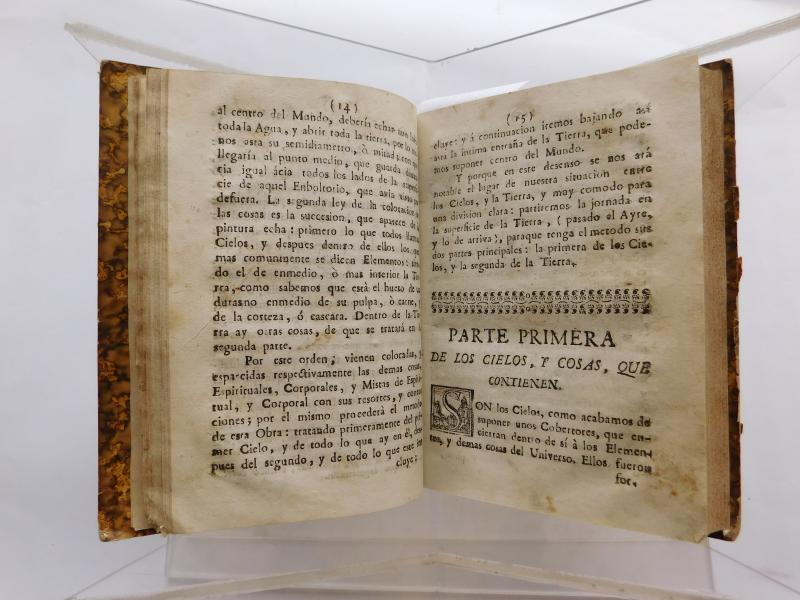 (14)
al centro del Mundo, debería echar
toda la Agua, y abrir toda la tierra, por lo
nos asta su semidiametro, ò mitad; con que
llegaría al punto medio, que guarda
cia igual ácia todos los lados de la
cie de aquel Enboltorio, que avia
defuera. La segunda ley de la colocacion
las cosas es la succesion, que aparece
pintura echa: primero lo que todos
Cielos, y despues dentro de ellos los
mas comunmente se dicen Elementos:
do el de enmedio, ò mas interior la Tie
rra, como sabemos que està el hueso de un
durasno enmedio de su pulpa, ò carne,
de la corteza, ó cascara. Dentro de la Tie
rra ay otras cosas, de que se tratará en la
segunda parte.
Por este orden; vienen colocadas, y
esparcidas respectivamente las demas cosas,
Espirituales, Corporales, y Mistas de Espiri
tual, y Corporal con sus resortes, y
ciones; por el mismo procederà el metodo
de esta Obra: tratando primeramente del pri
mer Cielo, y de todo lo que ay en él, des
pues del segundo, y de todo lo que este
cluye
(15)
cluye: y á continuacion iremos bajando asá
asta la intima entraña de la Tierra, que pode-
mos suponer centro del Mundo.
Y porque en este descenso se nos ará
notable el lugar de nuestra situacion entre
los Cielos, y la Tierra, y muy comodo para
una division clara: partiremos la jornada en
la superficie de la Tierra, (pasado el Ayre,
y lo de arriva), paraque tenga el metodo sus
dos partes principales: la primera de los Cie-
los, y la segunda de la Tierra.
PARTE PRIMERA
DE LOS CIELOS, Y COSAS, QUE
CONTIENEN.
SON los Cielos, como acabamos de
suponer unos Cobertores, que en-
cierran dentro de sí à los Elemen-
tos, y demas cosas del Universo. Ellos fueron
for.